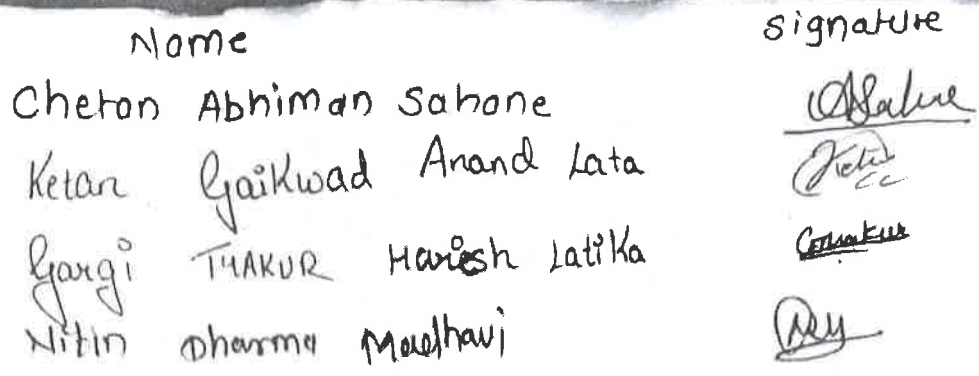 Name Signature
Chetan Abhiman Sahane
Ketan Gaikwad Anand Lata
Gargi THAKUR Haresh Latika
Nitin Dharma Madhavi